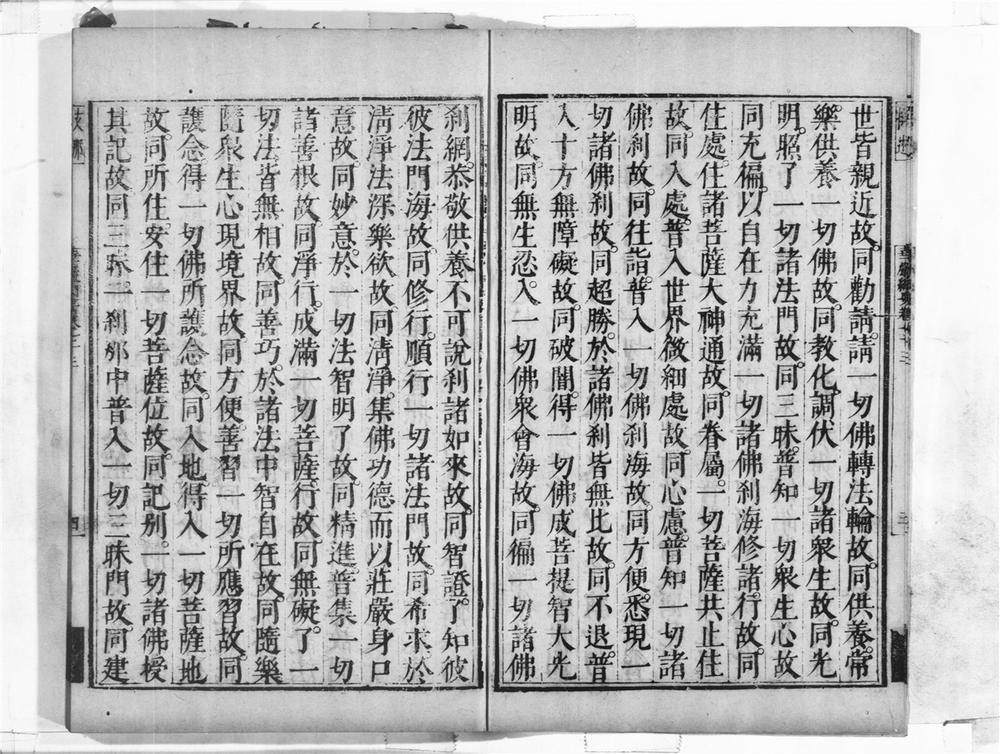 世皆親近故。同勸請。請一切佛轉法輪故。同供養。常
樂供養一切佛故。同教化。調伏一切諸衆生故。同光
明。照了一切諸法門故。同三昧。普知一切衆生心故
同充徧。以自在力充滿一切諸佛刹海修諸行故。同
住處。住諸菩薩大神通故。同眷屬。一切菩薩共止住
故。同入處。普入世界微細處故。同心慮。普知一切諸
佛刹故。同往詣。普入一切佛刹海故。同方便。悉現一
切諸佛刹故。同超勝。於諸佛刹皆無比故。同不退。普
入十方無障礙故。同破闇。得一切佛成菩提智大光
明故。同無生忍。入一切佛衆會海故。同徧一切諸佛
刹網。恭敬供養不可說刹諸如來故。同智證。了知彼
彼法門海故。同修行。順行一切諸法門故。同希求。於
淸淨法深樂欲故。同淸淨。集佛功德而以莊嚴身口
意故。同妙意。於一切法智明了故。同精進。普集一切
諸善根故。同淨行。成滿一切菩薩行故。同無礙。了一
切法皆無相故。同善巧。於諸法中智自在故。同隨樂
隨衆生心現境界故。同方便。善習一切所應習故。同
護念。得一切佛所護念故。同入地。得入一切菩薩地
故。同所住。安住一切菩薩位故。同記别。一切諸佛授
其記故。同三昧。一刹那中普入一切三昧門故。同建